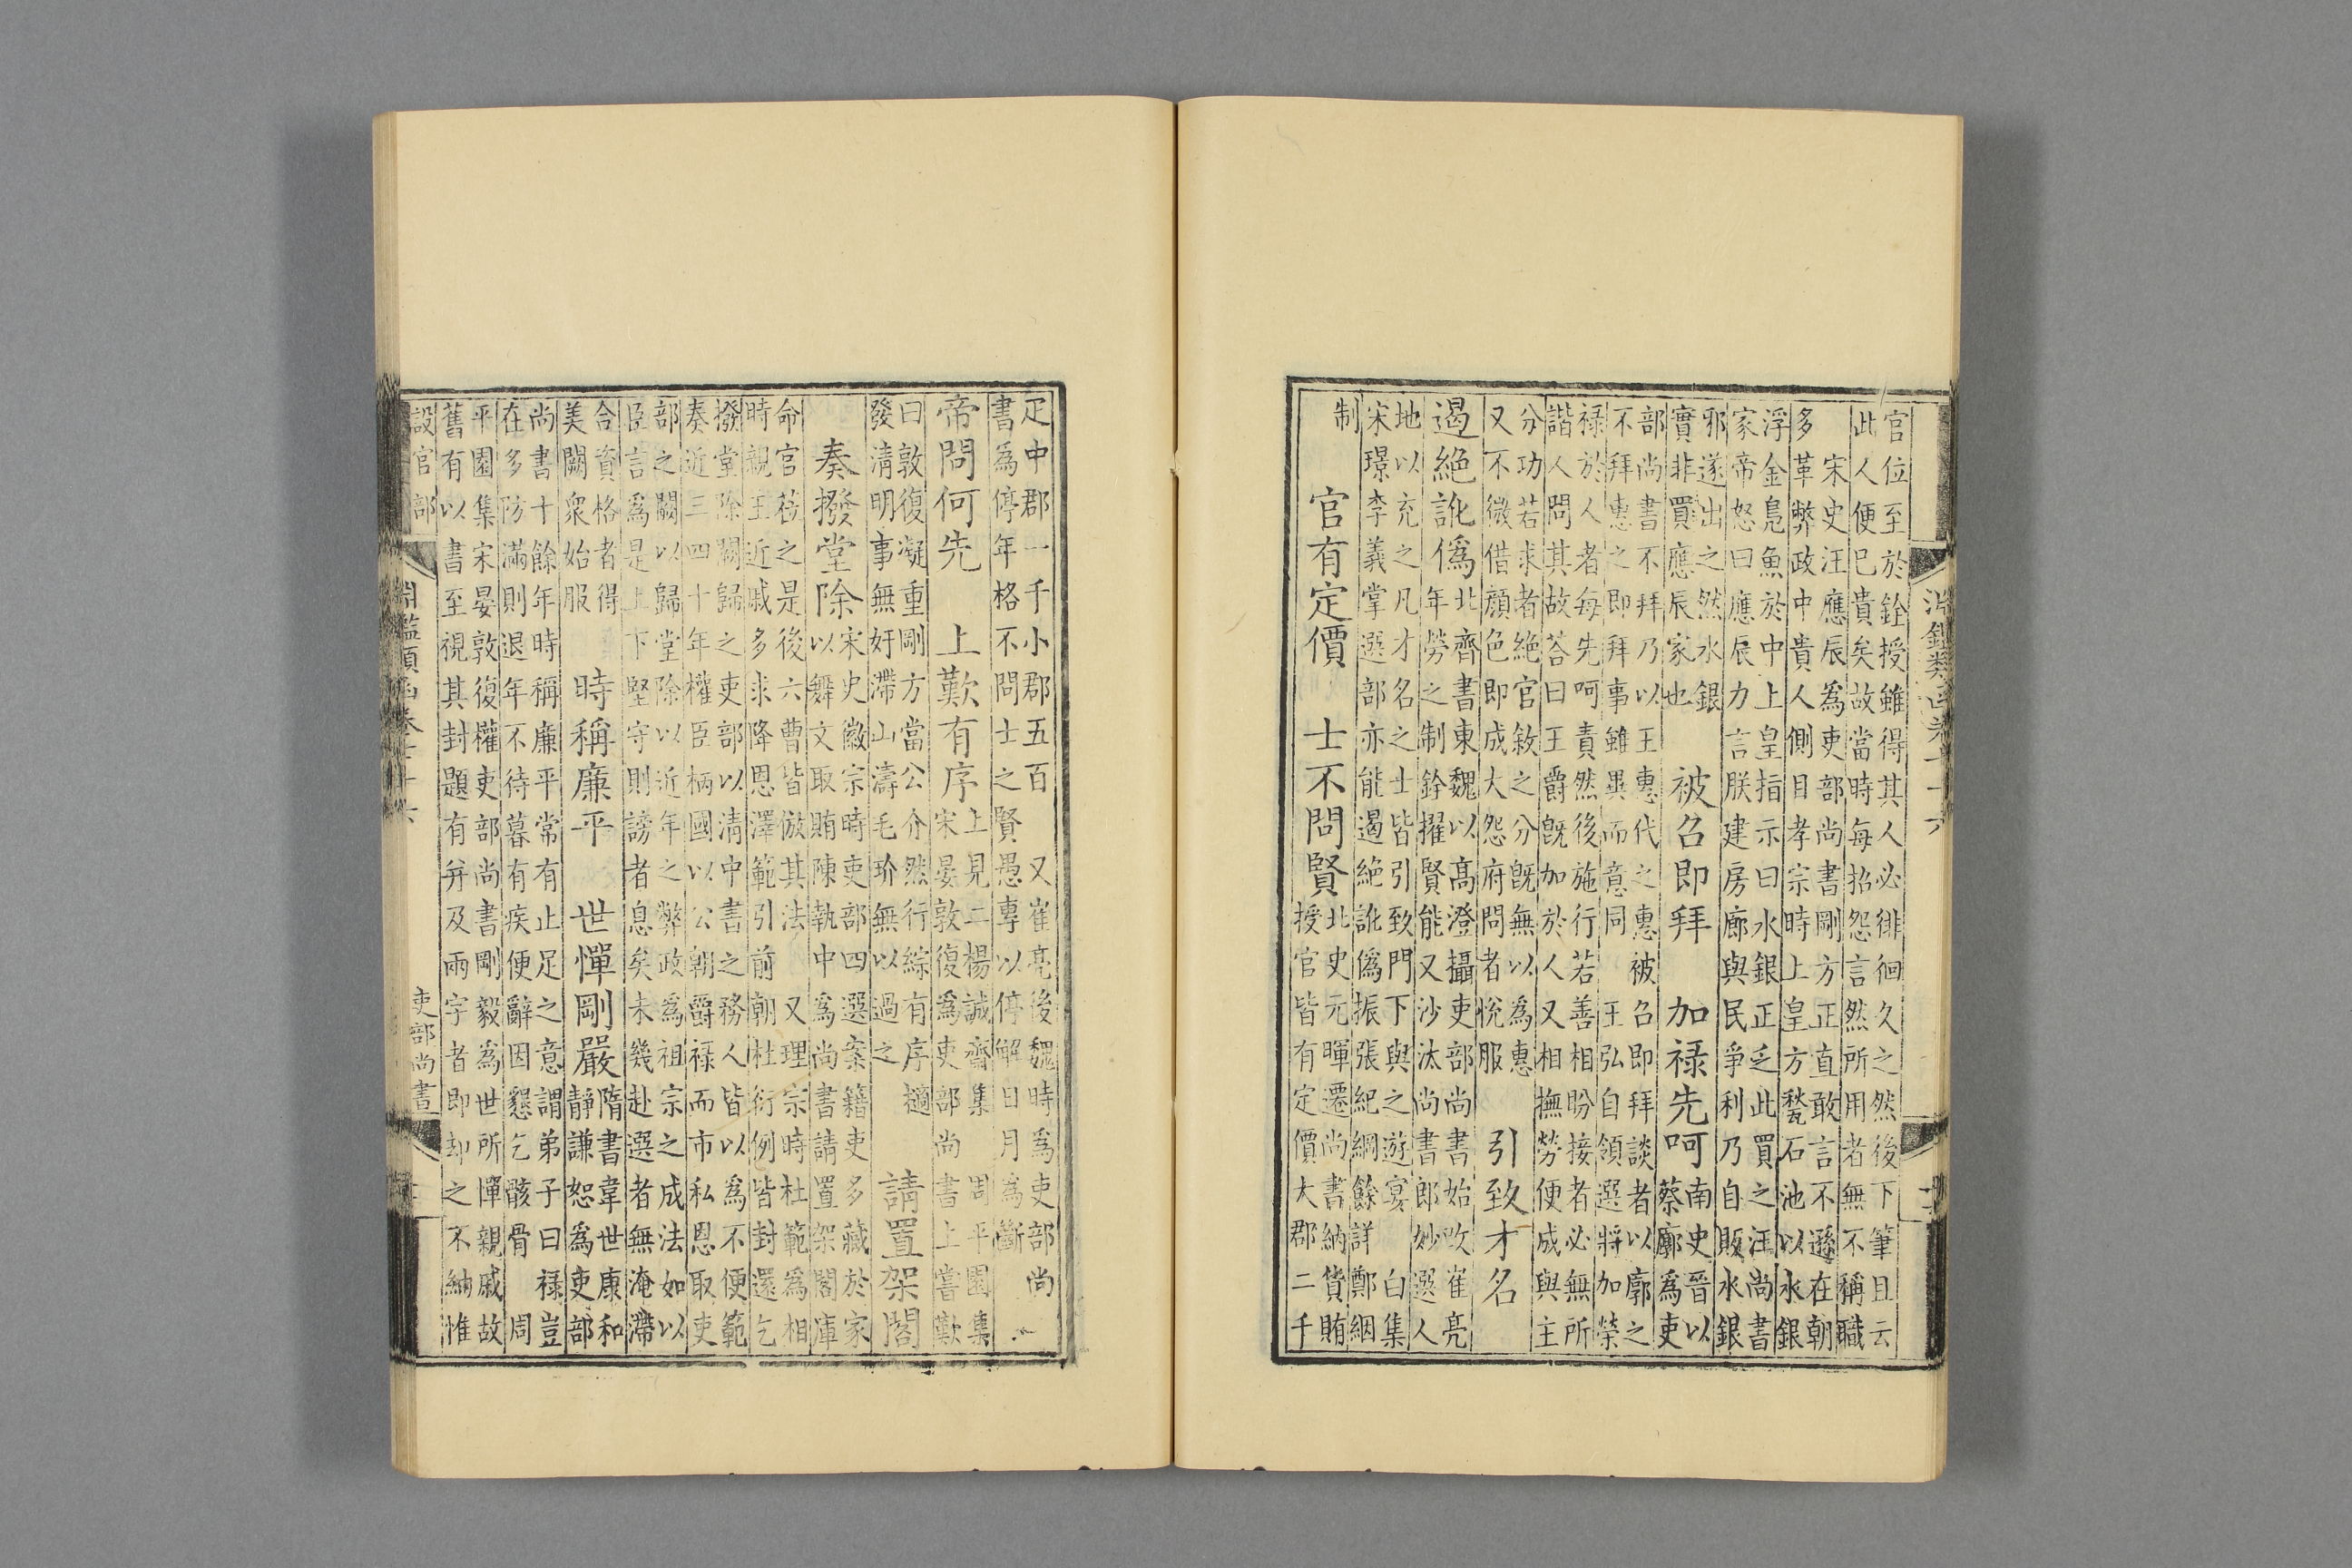 官位至於銓授雖得其人必徘徊久之然後下筆且云
此人便已貴矣故當時每招怨言然所用者無不稱職
宋史汪應辰為吏部尚書剛方正直敢言不遜在朝
多革弊政中貴人側目孝宗時上皇方甃石池以水銀
浮金鳧魚於中上皇指示曰水銀正乏此買之汪尚書
家帝怒曰應辰力言朕建房廊與民爭利乃自販水銀
邪遂出之然水銀
實非買應辰家也
被召即拜　加祿先呵
南史晉以
蔡廓為吏
部尚書不拜乃以王惠代之惠被召即拜談者以廓之
不拜惠之即拜事雖異而意同　王弘自領選將加榮
祿於人者每先呵責然後施行若善相盼接者必無所
諧人問其故荅曰王爵既加於人又相撫勞便成與主
分功若求者絕官敘之分既無以為惠
又不微借顏色即成大怨府問者悅服
引致才名
遏絕訛偽
北齊書東魏以高澄攝吏部尚書始改崔亮
年勞之制銓擢賢能又沙汰尚書郎妙選人
地以充之凡才名之士皆引致門下與之遊宴　白集
宋璟李義掌選部亦能遏絕訛偽振張紀綱餘詳　鄭絪
制
官有定價　士不問賢
北史元暉遷尚書納貨賄
授官皆有定價大郡二千
疋中郡一千小郡五百　又崔亮後魏時為吏部尚
書為停年格不問士之賢愚專以停解日月為斷
帝問何先　上歎有序
上見二楊誠齋集　周平園集
宋晏敦復為吏部尚書上嘗歎
曰敦復凝重剛方當公介然行綜有序擿
發清明事無好滯山濤毛玠無以過之
請置架閣
奏撥堂除
宋史徽宗時吏部四選案籍吏多藏於家
以舞文取賄陳執中為尚書請置架閣庫
命官蒞之是後六曹皆倣其法　又理宗時杜範為相
時親王近戚多求降恩澤範引前朝杜衍例皆封還乞
撥堂除闕歸之吏部以清中書之務人皆以為不便範
奏近三四十年權臣柄國以公朝爵祿而市私恩取吏
部之闕以歸堂除以近年之弊政為祖宗之成法如以
臣言為是上下堅守則謗者息矣未幾赴選者無淹滯
合資格者得
美闕衆始服
時稱廉平　世憚剛嚴
隋書韋世康和
靜謙恕為吏部
尚書十餘年時稱廉平常有止足之意謂弟子曰祿豈
在多防滿則退年不待暮有疾便辭因懇乞骸骨　周
平園集宋晏敦復權吏部尚書剛毅為世所憚親戚故
舊有以書至視其封題有弁及兩字者即却之不納惟
設官部　吏部尚書